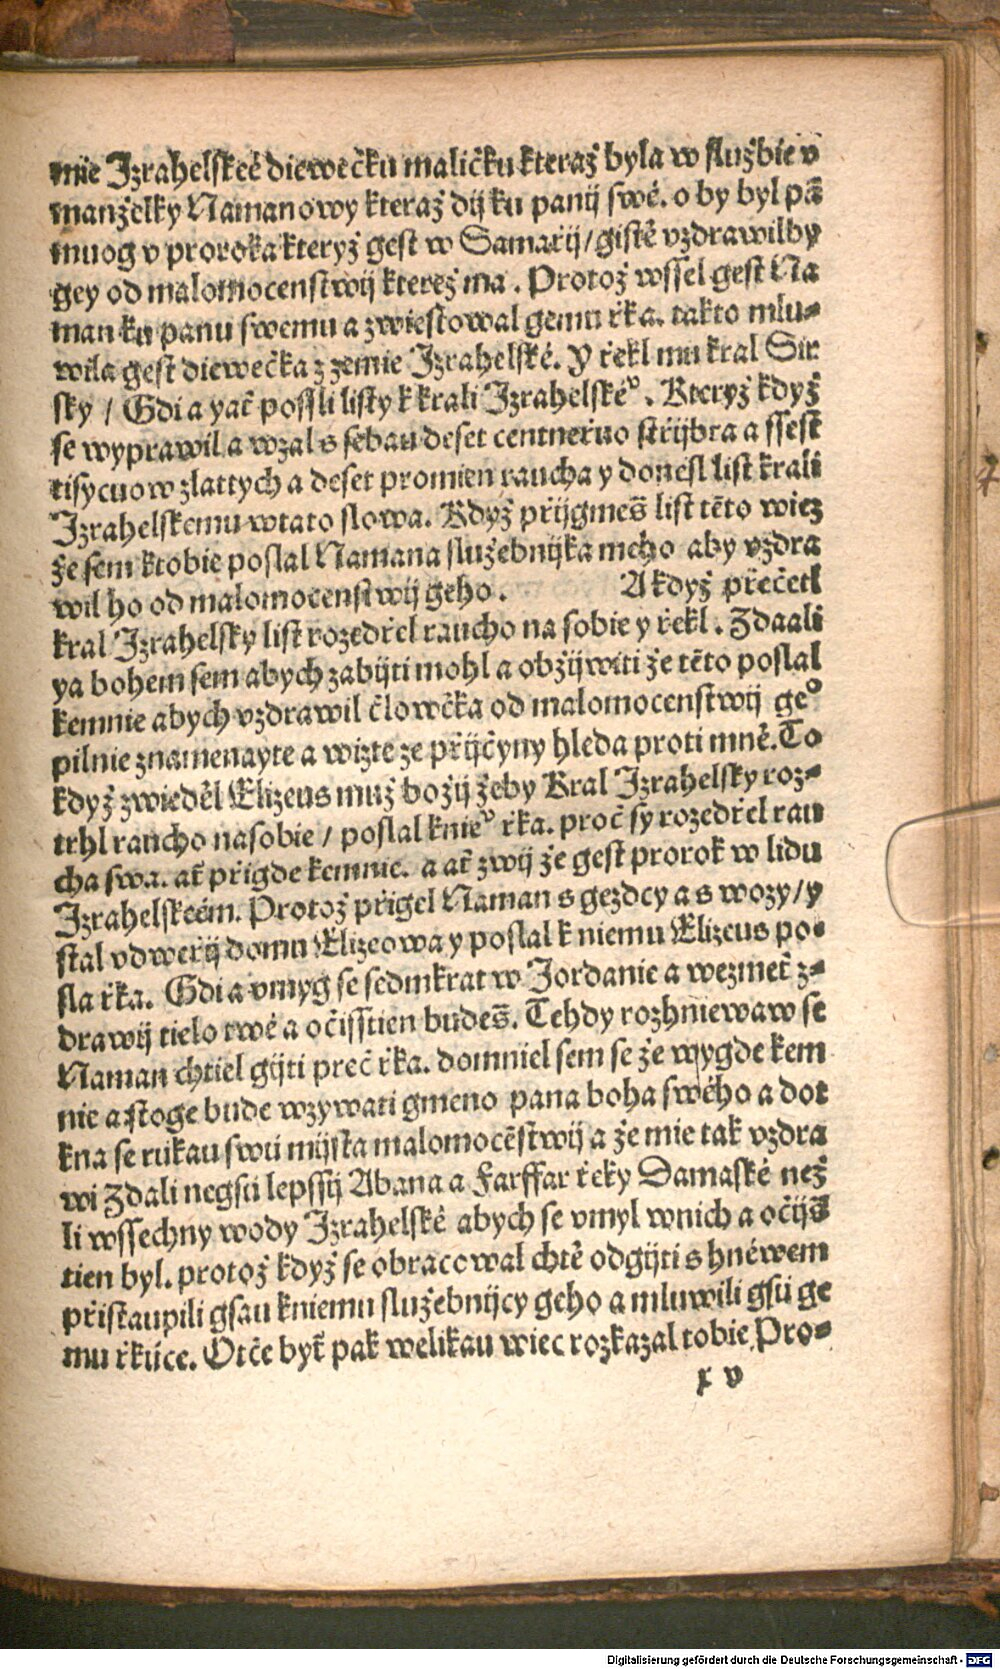 mie Izrahelskeé diewečku maličku kteraž byla w službie v
manželky Namanowy kteraž dij ku panij swé. o by byl pā
muog v proroka kteryž gest w Samařij/gistě vzdrawilby
gey od malomocenstwij kterež ma. Protož wssel gest Na
man ku panu swemu a zwiestowal gemu řka. takto mlu-
wila gest diewečka z zemie Izrahelské. Y řekl mu kral Sir
sky / Gdi a yať possli listy k krali Izrahelskeº. Kteryž když
se wyprawil a wzal s sebau deset centneřuo střijbra a ssest
tisycuow zlattych a deset promien raucha y donesl list krali
Izrahelskemu wtato slowa. Když přijgmeš list tēto wiez
že sem ktobie poslal Namana služebnijka meho aby vzdra
wil ho od malomocenstwij geho. A když přečetl
kral Izrahelsky list rozedřel raucho na sobie y řekl. Zdaali
ya bohem sem abych zabijti mohl a obžijwiti že tēto poslal
kemnie abych vzdrawil člowěka od malomocenstwij geº
pilnie znamenayte a wizte ze přijčyny hleda proti mně. To
když zwieděl Elizeus muž božij žeby Kral Izrahelsky roz-
trhl raucho nasobie / poslal knieº řka. proč sy rozedřel rau
cha swa. ať přigde kemnie. a ať zwij že gest prorok w lidu
Izrahelskeém. Protož přigel Naman s gezdcy a s wozy/y
stal vdweřij domu Elizeowa y poslal k niemu Elizeus po-
sla řka. Gdi a vmyg se sedmkrat w Jordanie a wezmeť z-
drawij tielo twé a očisstien budeš. Tehdy rozhniewaw se
Naman chtiel gijti preč řka. domniel sem se že wygde kem
nie a stoge bude wzywati gmeno pana boha swého a dot
kna se rukau swú mijsta malomocēstwij a že mie tak vzdra
wi Zdali negsú lepssij Abana a Farffar řeky Damaské než
li wssechny wody Izrahelské abych se vmyl wnich a očijš
tien byl. protož když se obracowal chtě odgijti s hněwem
přistaupili gsau kniemu služebnijcy geho a mluwili gsú ge
mu řkúce. Otče byť pak welikau wiec rozkazal tobie Pro-
x v
Digitalisierung gefördert durch die Deutsche Forschungsgemeinschaft - DFG